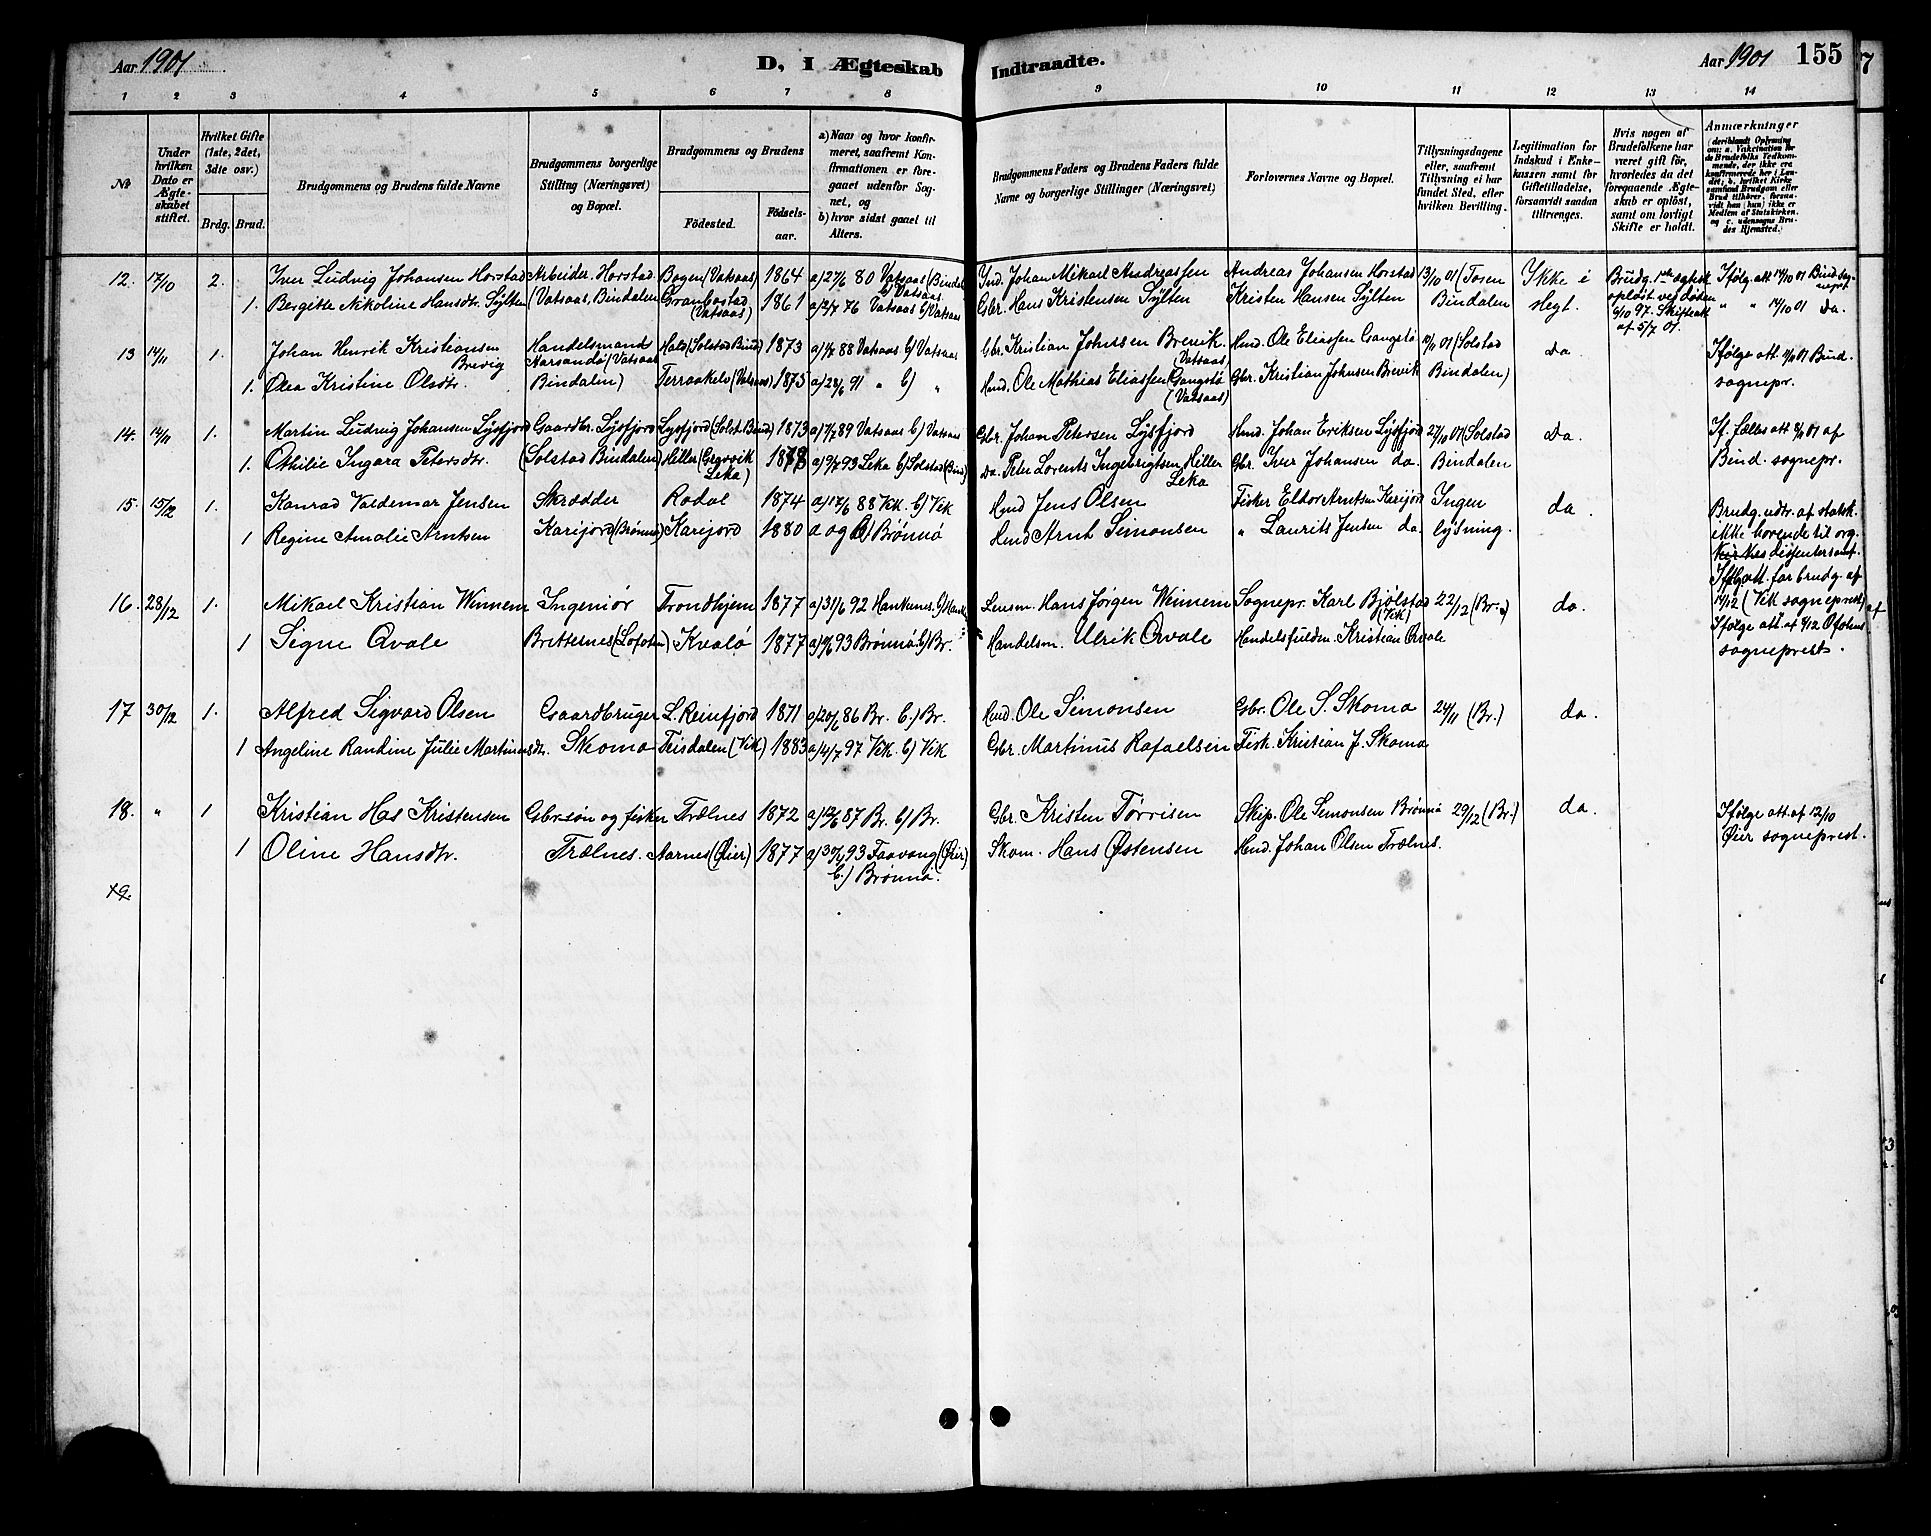 Aar 1901
D, I Ægteskab
Indtraadte.
Aar 1901
155
1 2 3 4 5 6 7 8 9 10 11 12 13 14
No
Under hvilken Dato er Ægteskabet stiftet.
Hvilket Gifte (1ste, 2det, 3die osv.)
Brdg. Brud.
Brudgommens og Brudens fulde Navne
Brudgommens borgerlige Stilling (Næringsvei) og Bopæl.
Brudgommens og Brudens
Födested.
Födselsaar.
a) Naar og hvor konfirmeret, saafremt Konfirmationen er foregaaet udenfor Sognet, og
b) hvor sidst gaaet til Alters.
Brudgommens Faders og Brudens Faders fulde Navne og borgerlige Stillinger (Næringsvei)
Forlovernes Navne og Bopæl.
Tillysningsdagene eller, saafremt Tillysning ei har fundet Sted, efter hvilken Bevilling.
Legitimation for Indskud i Enkekassen samt for Giftetilladelse, forsaavidt saadan tiltrænges.
Hvis nogen af Brudefolkene har været gift för, hvorledes da det foregaaende Ægteskab er oplöst, samt om lovligt Skifte er holdt.
Anmærkninger
12. 17/10 2. Iver Ludvig Johansen Horstad Arbeider. Horstad Bogen (Vatsaas) 1864 a) 27/6 80 Vatsaas (Bindal b) Vatsaas Ind. Johan Mikael Andreassen Andreas Johansen Horstad 13/10 01 (Tosen Ikke i Brudg. 1ste ægtesk. Ifølg. att. 14/10 01 Bind. sognepr.
1. Bergitte Nikoline Hansdtr. Sylten (Vatsaas, Bindalen Granbostad (Vatsaas) 1861 a) 2/7 76 Vatsaas b) Vatsaas Gbr. Hans Kristensen Sylten Kristen Hansen Sylten Bindalen slegt. opløst ved døden 6/10 97. Skifteatt. af 5/7 01. " " 14/10 01 Da.
13 14/11 1. Johan Henrik Kristiansen Brevig Handelsmand Hald (Solstad Bind) 1873 a) 1/7 88 Vatsaas b) Vatsaas Gbr. Kristian Johnsen Brevik (Vatsaas) Hmd. Ole Eliassen Gangstø 10/11 01 (Solstad da Ifølge att. 9/11 01 Bind.
1. Olea Kristine Olsdtr. Bindalen) Terraakelv (Vatsaas) 1875 a) 28/6 91 " b) " Hmd. Ole Mathias Eliassen Gangstø (Vatsaas) Gbr. Kristian Johnsen Brevik Bindalen) sognepr.
14. 14/11 1. Martin Ludvig Johansen Lysfjord Gaardbr. Lysfjord Lysfjord (Solst. Bind) 1873 a) 7/7 89 Vatsaas b) Vatsaas Gbr. Johan Petersen Lysfjord Hmd. Johan Eriksen Lysfjord 27/10 01 (Solstad Da. If. fælles att. 8/11 01 af
1. Othilie Ingara Petersdtr. (Solstad Bindalen) Hiller (Gravvik Leka) 1878 a) 9/7 93 Leka b) Solstad (Bind) Da. Peter Lorents Ingebrigtsen Hiller Leka Gbr. Iver Johansen do. Bindalen Bind. sognepr.
15. 15/12 1. Konrad Valdemar Jensen Skrædder Rodal 1874 a) 17/6 88 Vik. b) Vik Hmd Jens Olsen Fisker Eldor Arntsen Karijord Ingen da. Brudg. udtr. af statsk. ikke hørende til org. dissentersamf.
1 Regine Amalie Arntsen Karijord (Brønnø) Karijord 1880 a og b) Brønnø Hmd Arnt Simonsen " Laurits Jensen do. lysning.
16. 28/12 1. Mikael Kristian Winnem Ingeniør Trondhjem 1877 a) 31/6 92 Lensm. Hans Jørgen Weinem Sognepr. Karl Bjølstad (Vik) 22/12 (Br.) do. Ifølg att. for brudg. af 14/12 (Vik sogneprest)
1 Signe Qvale Britternes (Lofoten) Kvalø 1877 a) 19/6 93 Brønnø b) Br. Handelsm. Ulrik Qvale Handelsfuldm. Kristian Qvale Ifølge att. af 9/12 Ofotens sogneprest.
17 30/12 1. Alfred Sigvard Olsen Gaardbruger L. Reinfjord 1871 a) 20/6 86 Br. b) Br. Hmd. Ole Simonsen Gbr. Ole S. Skomo 24/11 (Br.) da.
1 Angeline Randine Julie Martinusdtr. Skomo Teisdalen (Vik) 1883 a) 4/7 97 Vik. b) Vik Gbr. Martinus Rafaelsen Fisk. Kristian J. Skomo
18. " 1 Kristian Has Kristensen Gbr.søn og fisker Trælnes 1872 a) 12/6 87 Br. b) Br. Gbr. Kristen Tørrisen Skip. Ole Simonsen Brønnø 29/12 (Br.) da. Ifølge att. af 12/10
1 Oline Hansdtr. Trælnes. Aarnes (Øier) 1877 a) 30/7 93 Faavang (Øier) b) Brønnø. Skom. Hans Østensen Hmd. Johan Olsen Trælnes. Øier sogneprest.